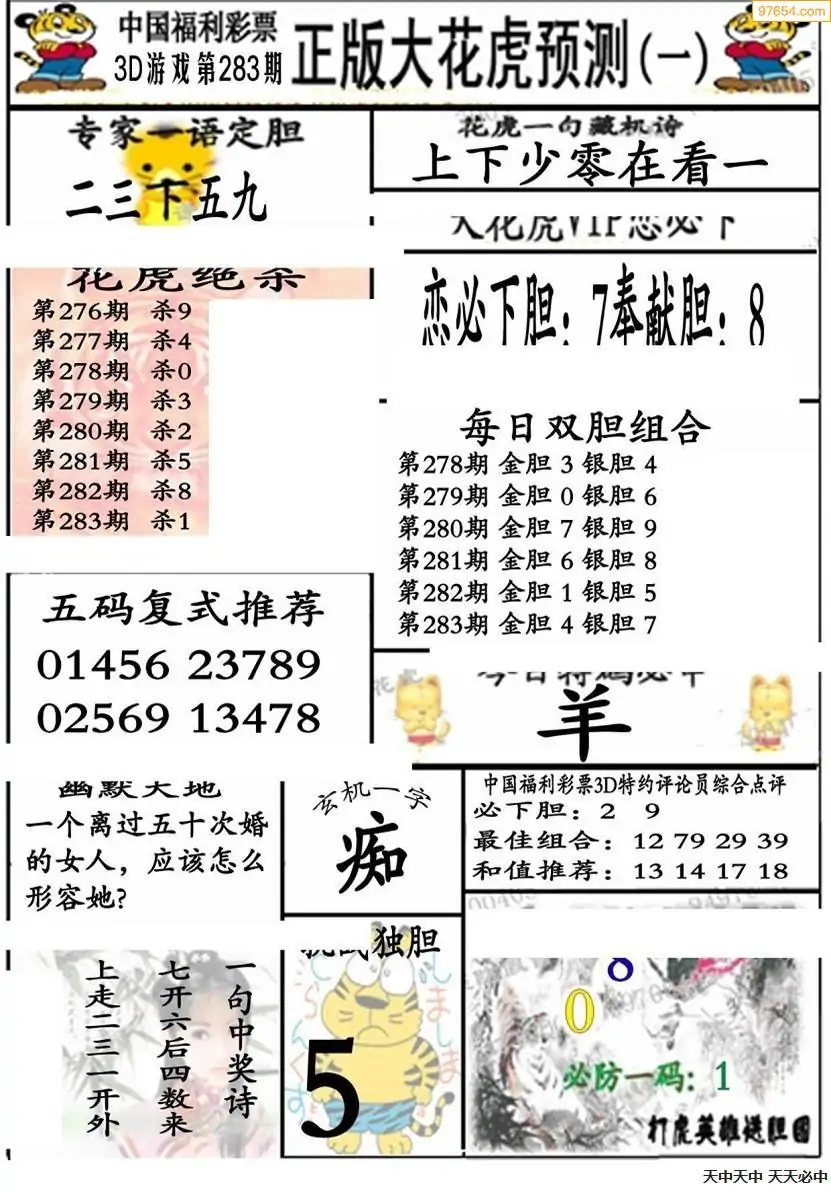 97654.com
中国福利彩票
3D游戏第283期
正版大花虎预测(一)
专家一语定胆
二三下五九
花虎一句藏机诗
上下少零在看一
大花虎VIP恋必下
恋必下胆：7奉献胆：8
花虎绝杀
第276期 杀9
第277期 杀4
第278期 杀0
第279期 杀3
第280期 杀2
第281期 杀5
第282期 杀8
第283期 杀1
每日双胆组合
第278期 金胆 3 银胆 4
第279期 金胆 0 银胆 6
第280期 金胆 7 银胆 9
第281期 金胆 6 银胆 8
第282期 金胆 1 银胆 5
第283期 金胆 4 银胆 7
五码复式推荐
01456 23789
02569 13478
花虎
羊
幽默天地
一个离过五十次婚
的女人，应该怎么
形容她?
玄机一字
痴
中国福利彩票3D特约评论员综合点评
必下胆：2 9
最佳组合：12 79 29 39
和值推荐：13 14 17 18
一句中奖诗
七开六后四数来
上走二三一开外
独胆
5
8
0
必防一码：1
打虎英雄送胆图
天中天中 天天必中